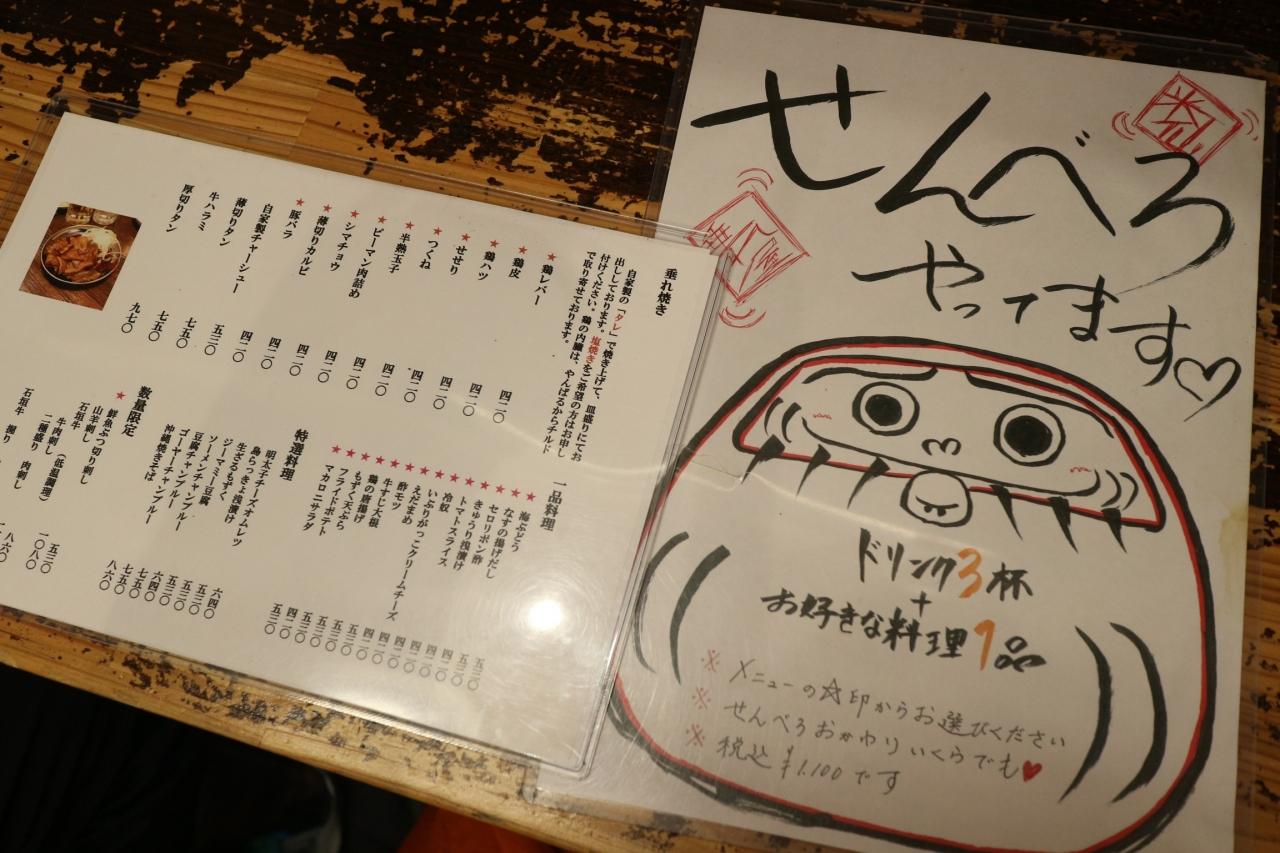 せんべろ
やってます♡
ドリンク3杯
+
お好きな料理1品
※ メニューの☆印からお選びください
※ せんべろおかわりいくらでも♥
※ 税込¥1.100です
垂れ焼き
自家製の「タレ」で焼き上げて、皿盛りにてお
出ししております。塩焼きをご希望の方はお申し
付けください。鶏の内臓は、やんばるからチルド
で取り寄せております。
★鶏レバー 四二〇
★鶏皮 四二〇
★鶏ハツ 四二〇
★せせり 四二〇
★つくね 四二〇
★半熟玉子 四二〇
★ピーマン肉詰め 四二〇
★シマチョウ 四二〇
★薄切りカルビ 四二〇
★豚バラ 四二〇
自家製チャーシュー 五三〇
薄切りタン 七五〇
牛ハラミ 七五〇
厚切りタン 九七〇
一品料理
★海ぶどう 五三〇
★なすの揚げだし 五三〇
★セロリポン酢 四二〇
★きゅうり浅漬け 四二〇
★トマトスライス 四二〇
★冷奴 四二〇
★いぶりがっこクリームチーズ 四二〇
★えだまめ 四二〇
★酢モツ 五三〇
★牛すじ大根 五三〇
★鶏の唐揚げ 五三〇
★もずく天ぷら 五三〇
★フライドポテト 四二〇
★マカロニサラダ 五三〇
特選料理
明太子チーズオムレツ 六四〇
島らっきょ浅漬け 五三〇
生ざるもずく 五三〇
ジーマミー豆腐 五三〇
ソーメンチャンプルー 六四〇
豆腐チャンプルー 七五〇
ゴーヤーチャンプルー 七五〇
沖縄焼きそば 八六〇
数量限定
★鮮魚ぶつ切り刺し 五三〇
山羊刺し 一〇八〇
石垣牛
牛肉刺し(低温調理) 八六〇
二種盛り
石垣牛 握り 肉刺し